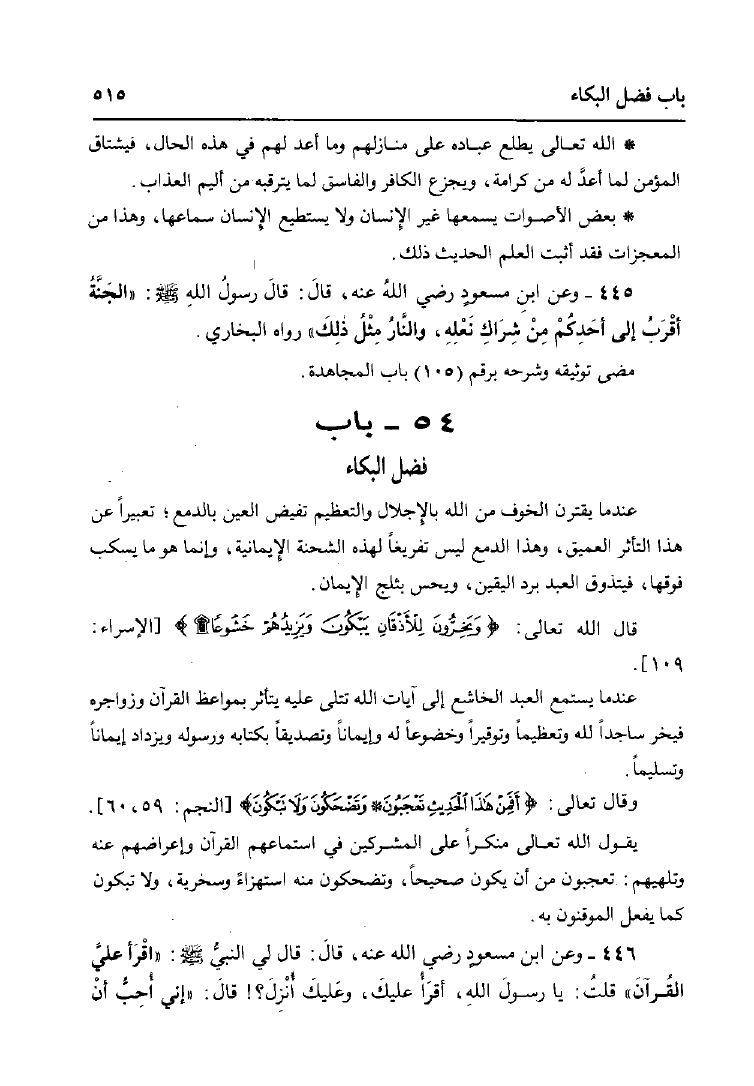 باب فضل البكاء ٥١٥
* الله تعـالى يطلع عبـاده على منـازلهم ومـا أعد لهم في هذه الحال، فيشتاق
المؤمن لما أعدَّ له من كرامة، ويجزع الكافر والفاسق لما يترقبه من أليم العذاب.
* بعض الأصـوات يسمعها غير الإنسان ولا يستطيع الإنسان سماعها، وهذا من
المعجزات فقد أثبت العلم الحديث ذلك.
٤٤٥ ـ وعن ابنِ مسعودٍ رضي اللهُ عنه، قالَ: قالَ رسولُ اللهِ ﷺ: «الجَنَّةُ
أقْرَبُ إلى أحَدِكُمْ مِنْ شِرَاكِ نَعْلِهِ، والنَّارُ مِثْلُ ذٰلِكَ» رواه البخاري.
مضى توثيقه وشرحه برقم (١٠٥) باب المجاهدة.
٥٤ ـ باب
فضل البكاء
عندما يقترن الخوف من الله بالإجلال والتعظيم تفيض العين بالدمع؛ تعبيراً عن
هذا التأثر العميق، وهذا الدمع ليس تفريغاً لهذه الشحنة الإيمانية، وإنما هو ما يسكب
فوقها، فيتذوق العبد برد اليقين، ويحس بثلج الإيمان.
قال الله تعالى: ﴿وَيَخِرُّونَ لِلْأَذْقَانِ يَبْكُونَ وَيَزِيدُهُمْ خُشُوعًا۩﴾ [الإسراء:
١٠٩].
عندما يستمع العبد الخاشع إلى آيات الله تتلى عليه يتأثر بمواعظ القرآن وزواجره
فيخر ساجداً لله وتعظيماً وتوقيراً وخضوعاً له وإيماناً وتصديقاً بكتابه ورسوله ويزداد إيماناً
وتسليماً.
وقال تعالى: ﴿أَفَمِنْ هَٰذَا الْحَدِيثِ تَعْجَبُونَ * وَتَضْحَكُونَ وَلَا تَبْكُونَ﴾ [النجم: ٥٩، ٦٠].
يقـول الله تعـالى منكـراً على المشـركين في استماعهم القرآن وإعراضهم عنه
وتلهيهم: تعجبون من أن يكون صحيحاً، وتضحكون منه استهزاءً وسخرية، ولا تبكون
كما يفعل الموقنون به.
٤٤٦ ـ وعن ابن مسعودٍ رضي الله عنه، قالَ: قال لي النبيُّ ﷺ: «اقْرَأ عليَّ
القُـرآنَ» قلتُ: يا رسولَ اللهِ، أقرَأُ عليكَ، وعَليكَ أُنْزِلَ؟! قالَ: «إني أُحِبُّ أنْ